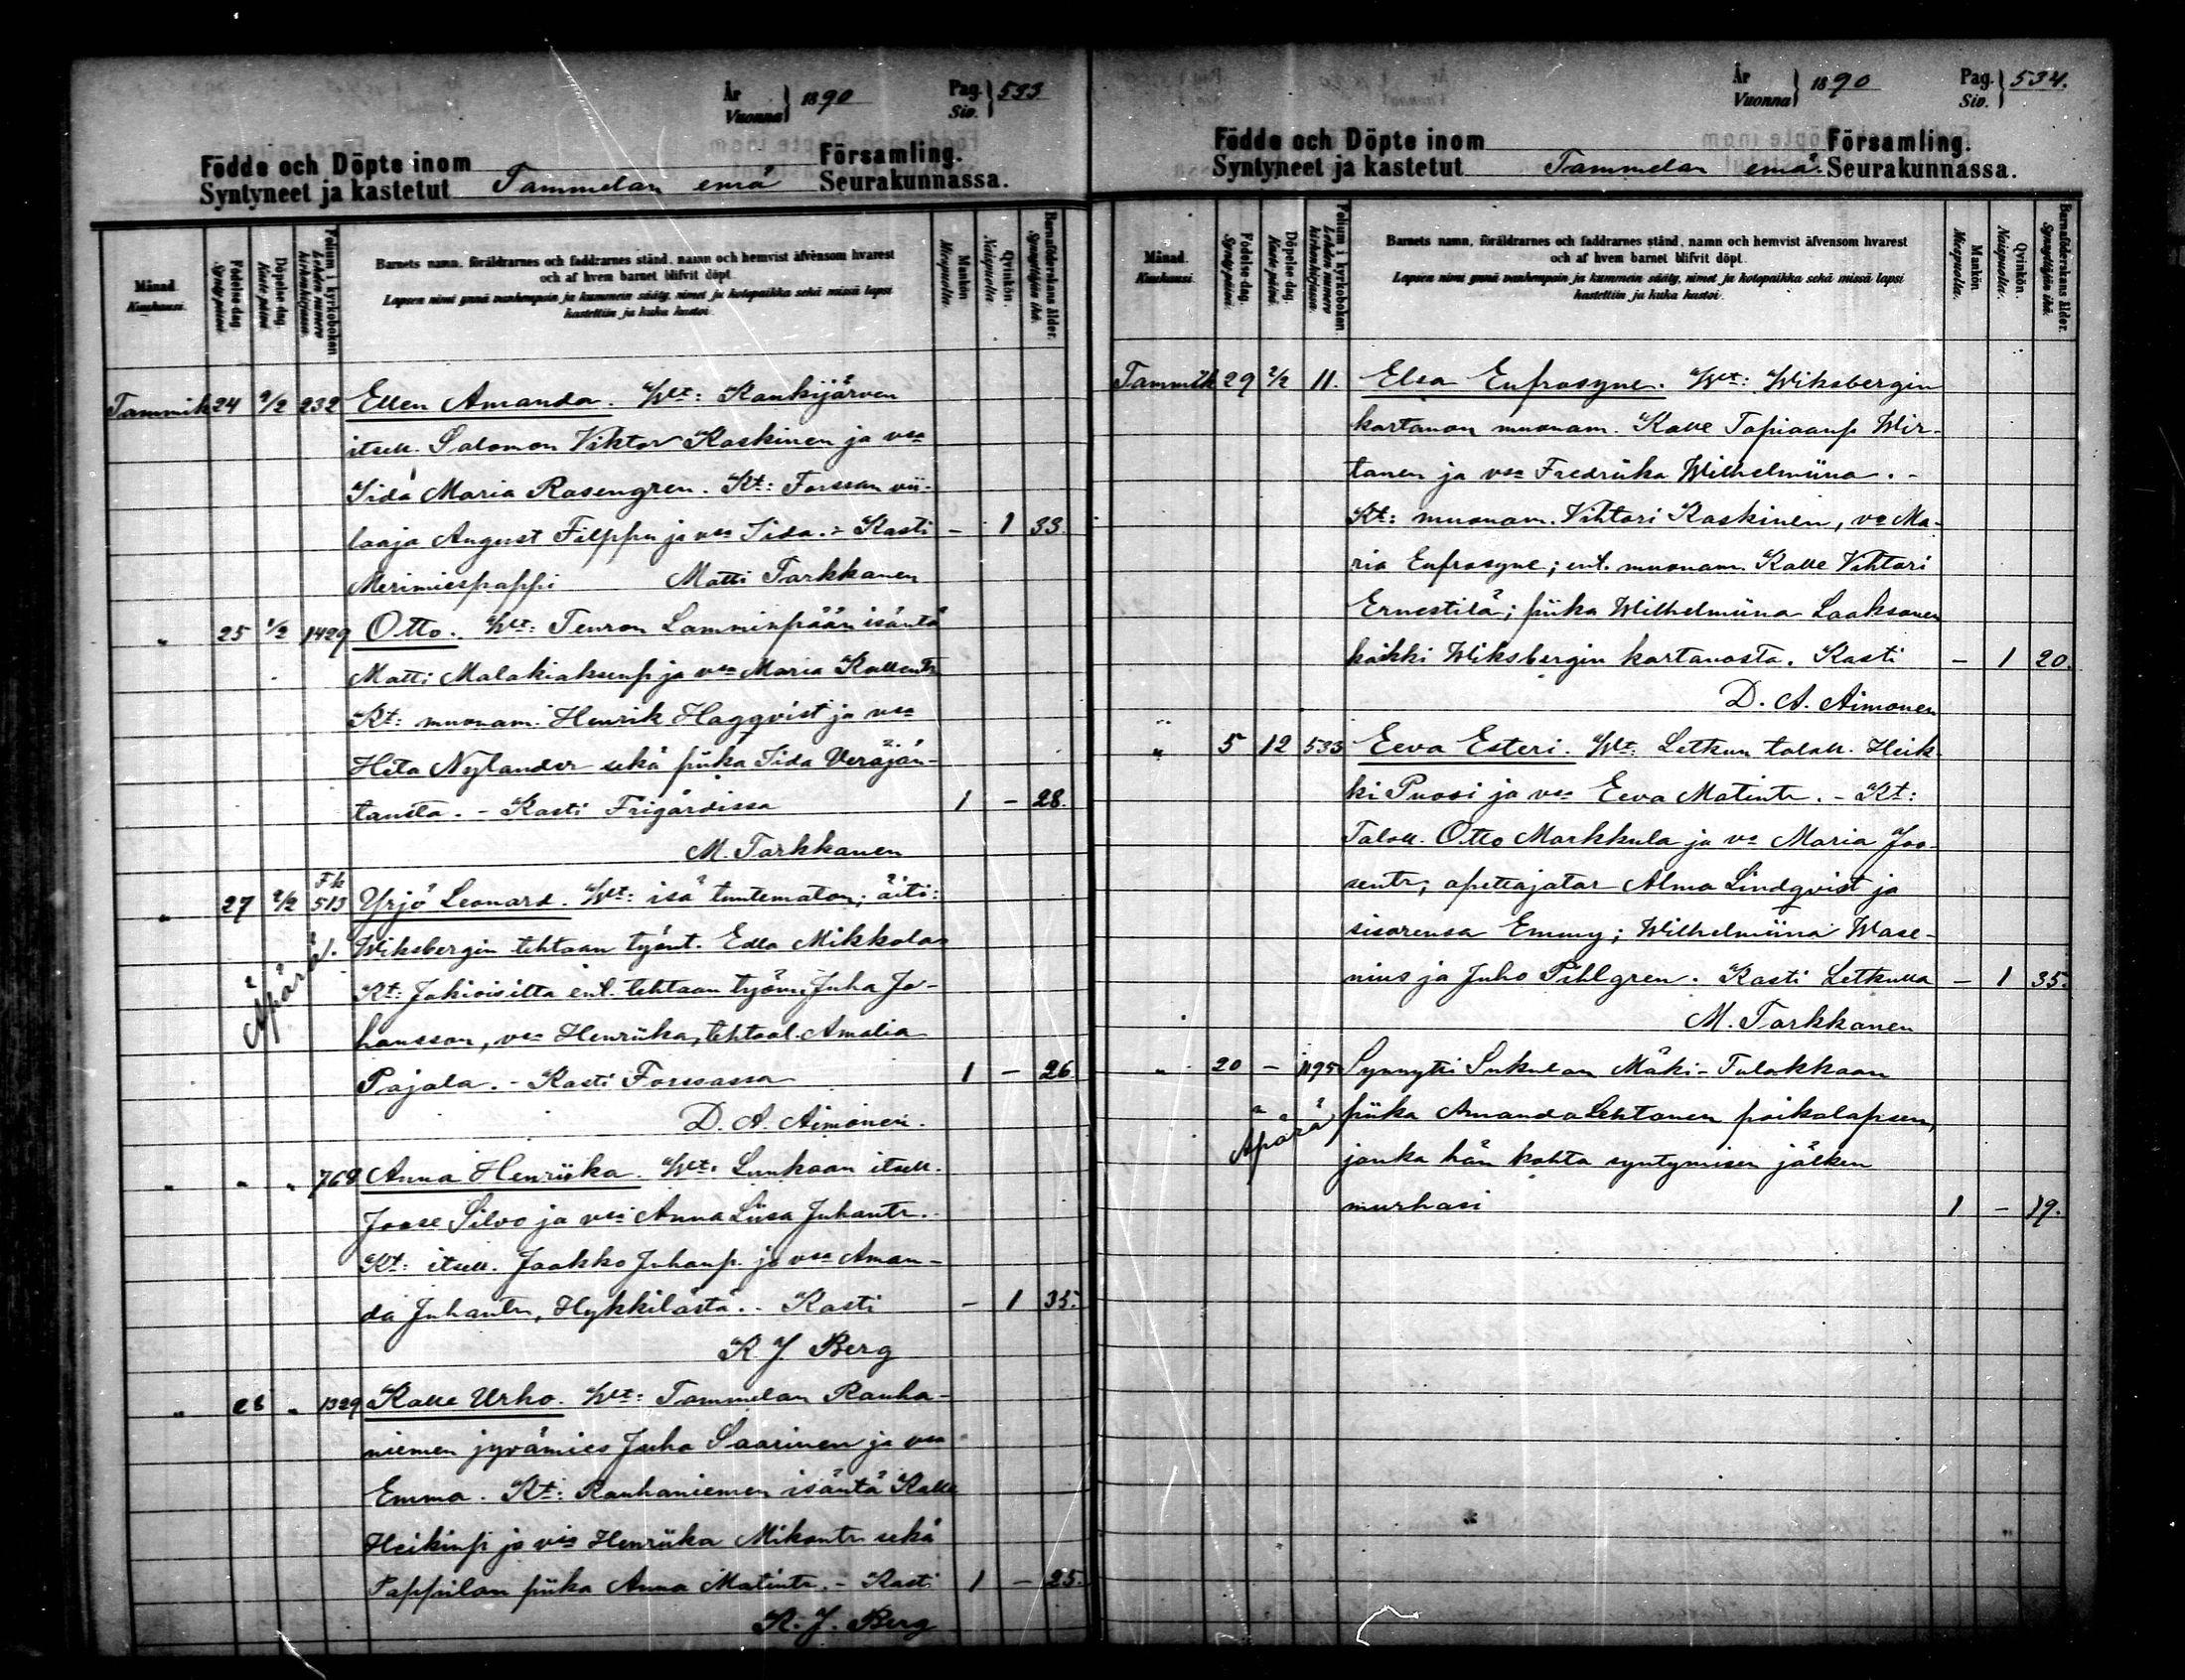 År
Vuonna } 1890
Pag.
Siv. } 533
Födde och Döpte inom Församling.
Syntyneet ja kastetut Tammelan emä Seurakunnassa.
Månad. Kuukausi.
Födelse-dag. Synty-päivä.
Döpelse-dag. Kaste-päivä.
Folium i kyrkoboken. Lehden numero kirkonkirjassa.
Barnets namn, föräldrarnes och faddrarnes stånd, namn och hemvist äfvensom hvarest
och af hvem barnet blifvit döpt.
Lapsen nimi ynnä vanhempain ja kummein sääty, nimet ja kotopaikka sekä missä lapsi
kastettiin ja kuka kastoi.
Mankön. Miespuolia.
Qvinkön. Naispuolia.
Barnaföderskans ålder. Synnyttäjän ikä.
Tammik 24 2/2 232 Ellen Amanda. Wt: Kaukijärven
itsell. Salomon Viktor Koskinen ja vsa
Iida Maria Rosengren. Kt: Forssan vii-
laaja August Filppu ja vsa Iida. - Kasti - 1 33.
Merimiespappi Matti Tarkkanen
" 25 1/2 1429 Otto. Wt: Teuron Lamminpään isäntä
Matti Malakiaksenp ja vsa Maria Kallentr
Kt: muonam. Henrik Hagqvist ja vsa
Heta Nylander sekä piika Iida Veräjän-
tausta. - Kasti Frigårdissa 1 - 28.
M. Tarkkanen
" 27 2/2 Fk 513 Yrjö Leonard. Wt: isä tuntematon; äiti:
Äpärä 1. Wiksbergin tehtaan työnt. Edla Mikkola
Kt: Jokioisilta ent. tehtaan työm. Juha Jo-
hansson, vsa Henriika, tehtaal. Amalia
Pajala. - Kasti Forssassa 1 - 26
D. A. Aimonen.
" " " 768 Anna Henriika. Wt: Lunkaan itsell.
Joose Silvo ja vsa Anna Liisa Juhantr.
Kt: itsell. Jaakko Juhanp. ja vsa Aman-
da Juhantr, Hykkilästä. - Kasti - 1 35.
K J Berg
" 28 " 1329 Kalle Urho. Wt: Tammelan Rauha-
niemen jyvämies Juho Saarinen ja vsa
Emma. Kt: Rauhaniemen isäntä Kalle
Heikinp ja vsa Henriika Mikontr sekä
Pappilan piika Anna Matintr. - Kasti 1 - 25.
K. J. Berg
År
Vuonna } 1890
Pag.
Siv. } 534.
Födde och Döpte inom Församling.
Syntyneet ja kastetut Tammelan emä. Seurakunnassa.
Månad. Kuukausi.
Födelse-dag. Synty-päivä.
Döpelse-dag. Kaste-päivä.
Folium i kyrkoboken. Lehden numero kirkonkirjassa.
Barnets namn, föräldrarnes och faddrarnes stånd, namn och hemvist äfvensom hvarest
och af hvem barnet blifvit döpt.
Lapsen nimi ynnä vanhempain ja kummein sääty, nimet ja kotopaikka sekä missä lapsi
kastettiin ja kuka kastoi.
Mankön. Miespuolia.
Qvinkön. Naispuolia.
Barnaföderskans ålder. Synnyttäjän ikä.
Tammik 29 2/2 11. Elsa Eufrosyne. Wt: Wiksbergin
kartanon muonam. Kalle Topiaanp Wir-
tanen ja vsa Fredriika Wilhelmiina. -
Kt: muonam. Vihtori Koskinen, vo Ma-
ria Eufrosyne; ent. muonam. Kalle Vihtori
Ernestilä; piika Wilhelmiina Laaksonen
kaikki Wiksbergin kartanosta. Kasti - 1 20.
D. A. Aimonen
" 5 12 533 Eeva Esteri. Wt: Letkun talall. Heik-
ki Puosi ja vsa Eeva Matintr. - Kt:
Talall. Otto Markkula ja vo Maria Joo-
sentr; opettajatar Alma Lindqvist ja
sisarensa Emmy; Wilhelmiina Wase-
nius ja Juho Pihlgren. Kasti Letkulla - 1 35.
M. Tarkkanen
" 20 - 1195 Synnytti Sukulan Mäki-Tulokkaan
Äpärä piika Amanda Lehtonen poikalapsen,
jonka hän kohta syntymisen jälken
murhasi 1 - 19.